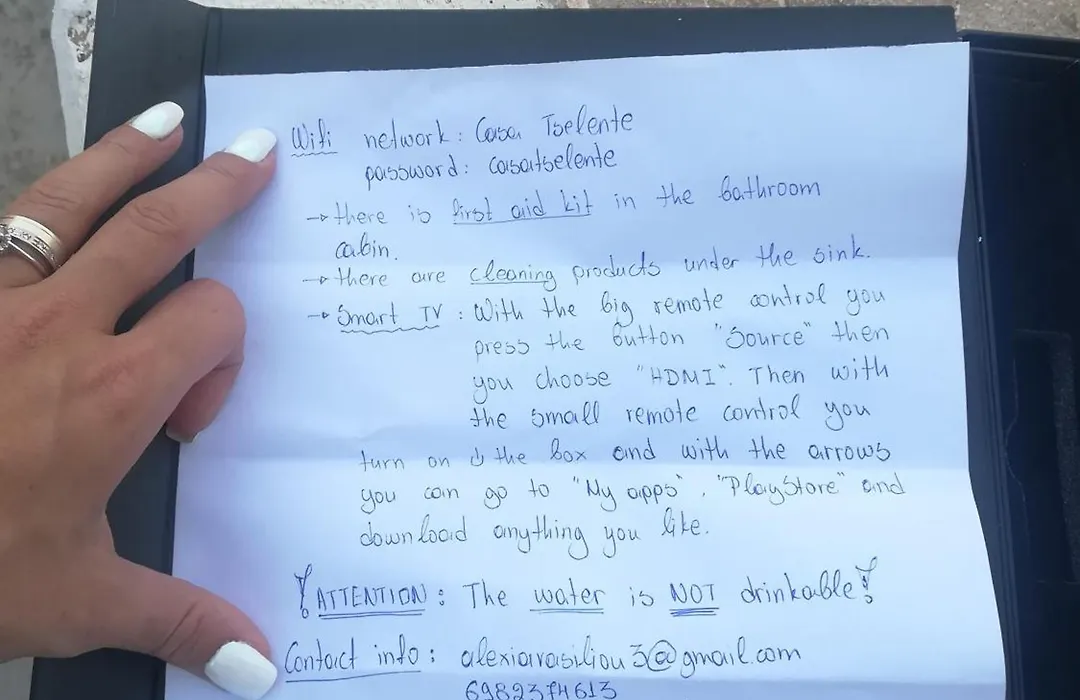 Wifi network: Casa Tselente
password: casatselente
→ there is first aid kit in the bathroom
cabin.
→ there are cleaning products under the sink.
→ Smart TV: With the big remote control you
press the button "Source" then
you choose "HDMI". Then with
the small remote control you
turn on ⏻ the box and with the arrows
you can go to "My apps", "PlayStore" and
download anything you like.
! ATTENTION: The water is NOT drinkable!
Contact info: alexiavasiliou3@gmail.com
6982374613